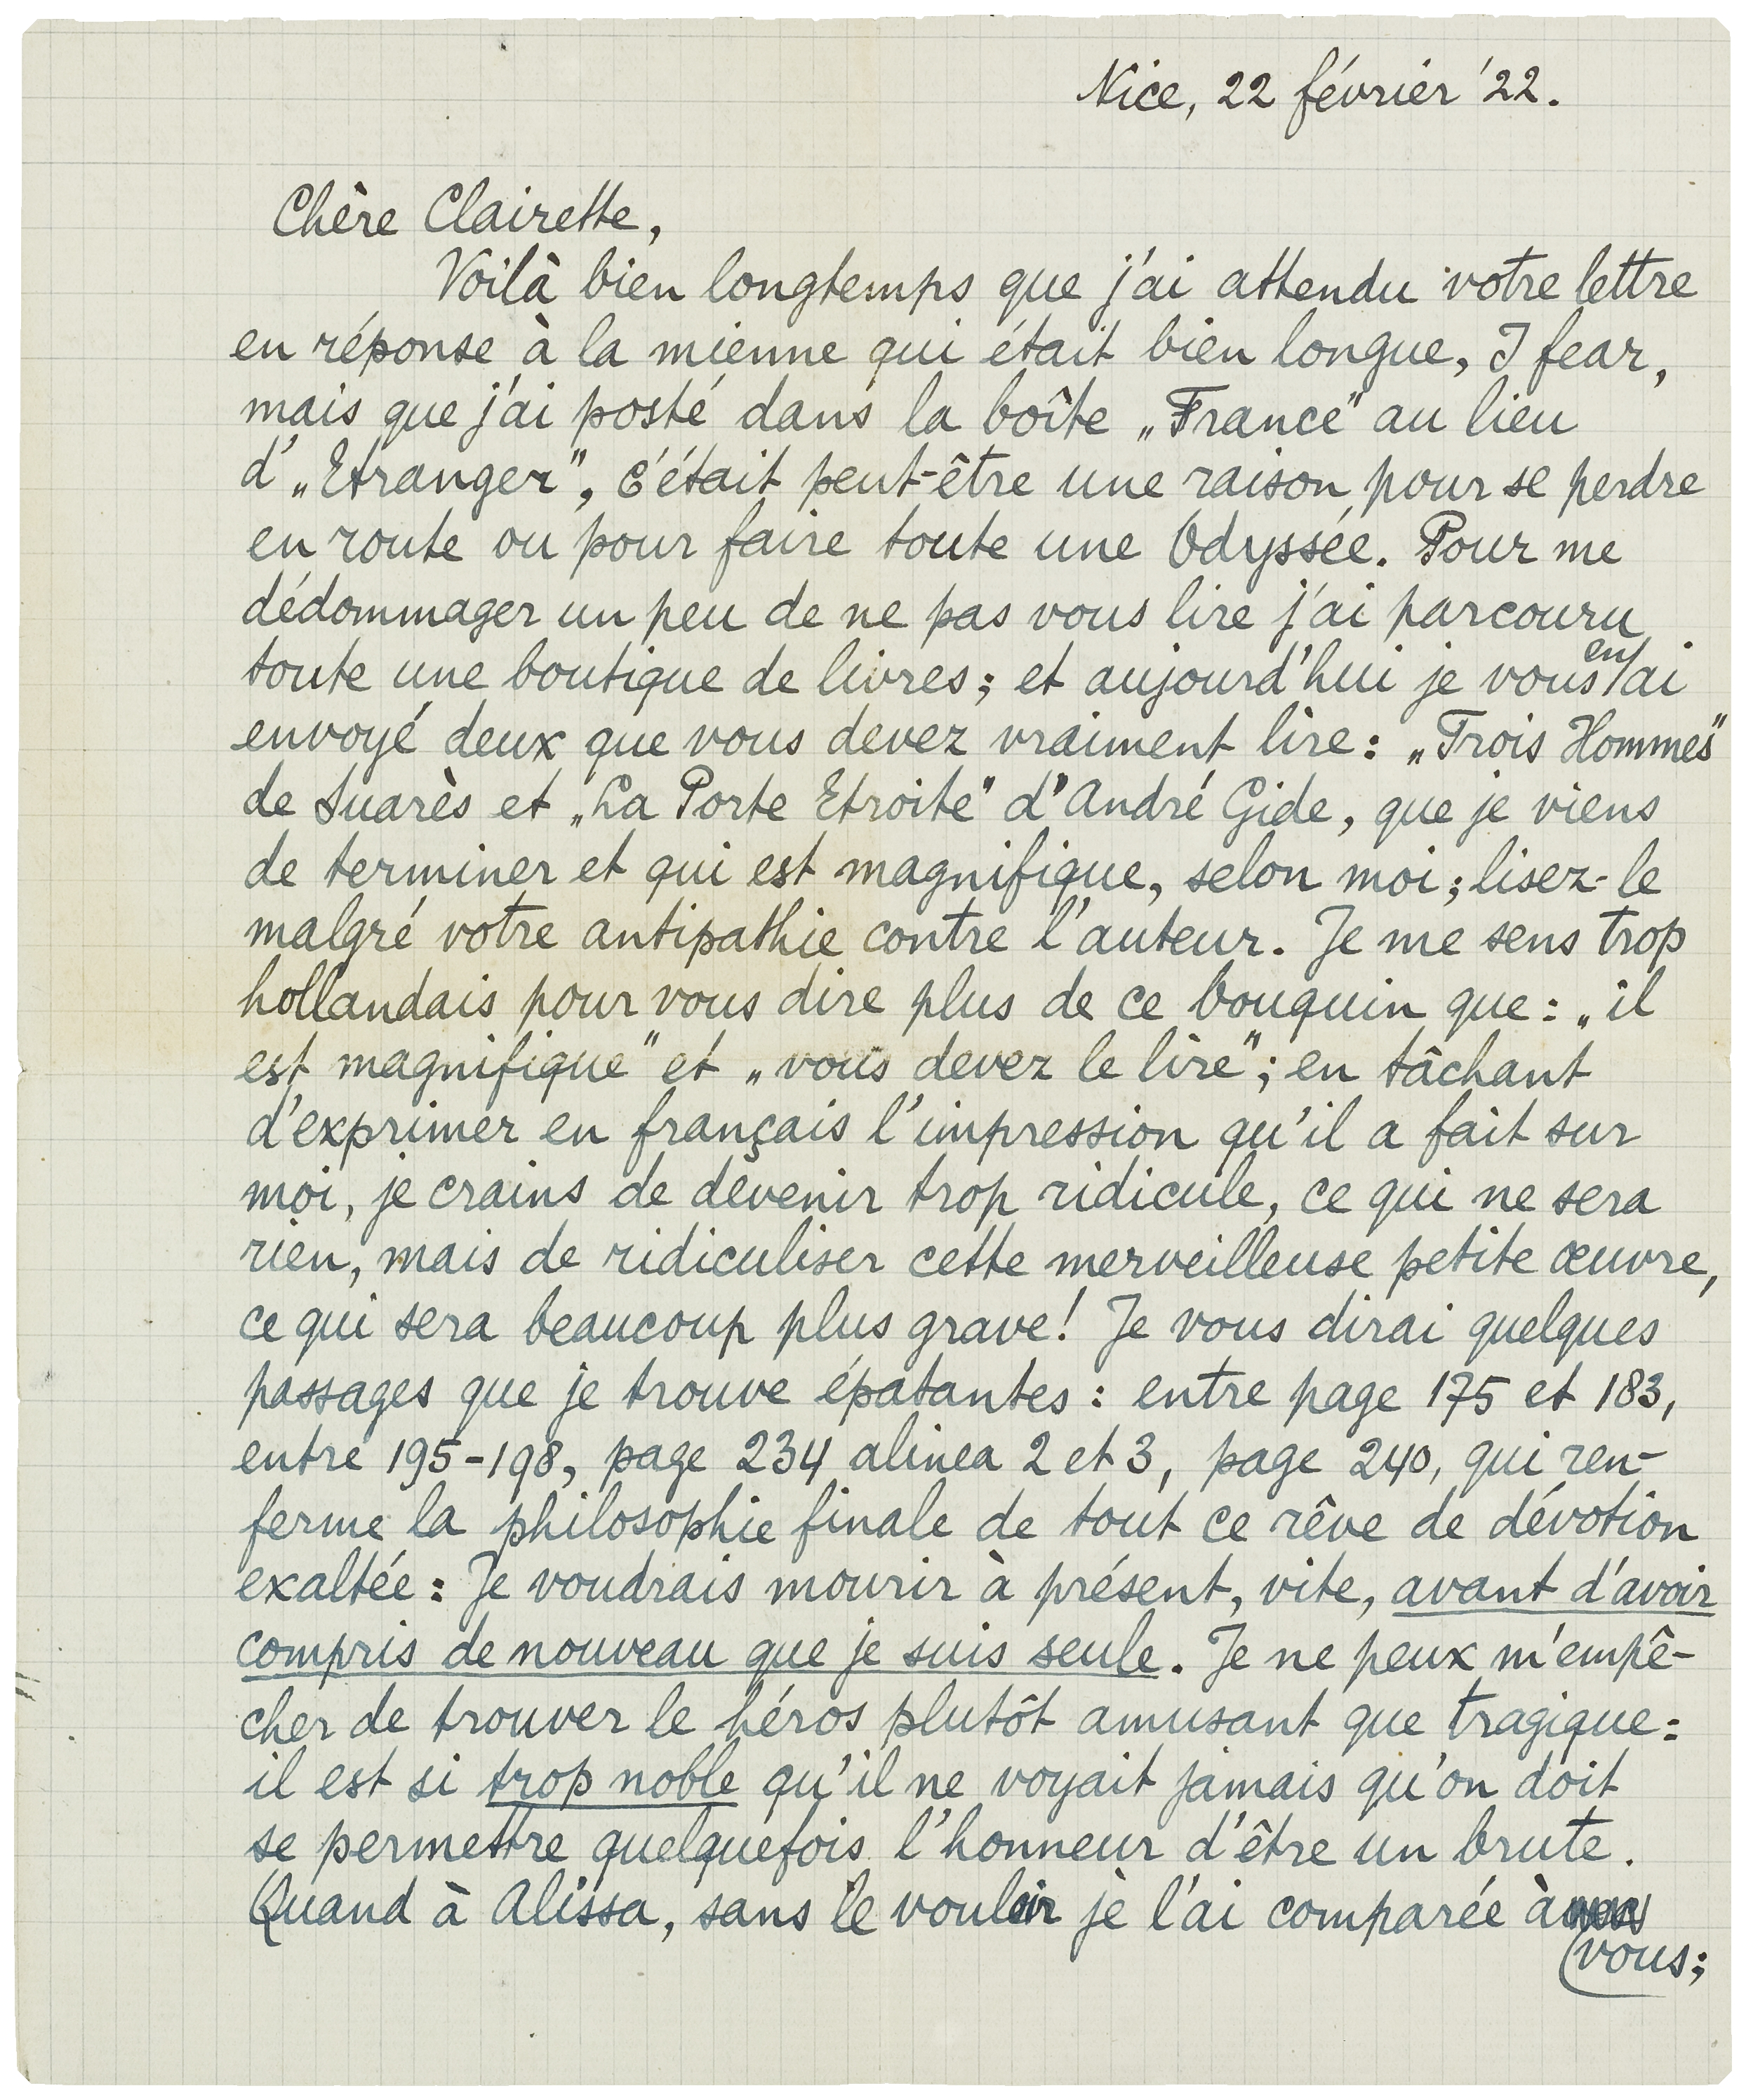 Nice, 22 février '22.
Chère Clairette,
Voilà bien longtemps que j'ai attendu votre lettre
en réponse à la mienne qui était bien longue, I fear,
mais que j'ai posté dans la boîte „France" au lieu
d'„Etranger", c'était peut-être une raison pour se perdre
en route ou pour faire toute une Odyssée. Pour me
dédommager un peu de ne pas vous lire j'ai parcouru
toute une boutique de livres; et aujourd'hui je vous en ai
envoyé deux que vous devez vraiment lire: „Trois Hommes"
de Suarès et „La Porte Etroite" d'André Gide, que je viens
de terminer et qui est magnifique, selon moi; lisez-le
malgré votre antipathie contre l'auteur. Je me sens trop
hollandais pour vous dire plus de ce bouquin que: „il
est magnifique" et „vous devez le lire"; en tâchant
d'exprimer en français l'impression qu'il a fait sur
moi, je crains de devenir trop ridicule, ce qui ne sera
rien, mais de ridiculiser cette merveilleuse petite œuvre,
ce qui sera beaucoup plus grave! Je vous dirai quelques
passages que je trouve épatantes: entre page 175 et 183,
entre 195-198, page 234 alinea 2 et 3, page 240, qui ren-
ferme la philosophie finale de tout ce rêve de dévotion
exaltée: Je voudrais mourir à présent, vite, avant d'avoir
compris de nouveau que je suis seule. Je ne peux m'empê-
cher de trouver le héros plutôt amusant que tragique:
il est si trop noble qu'il ne voyait jamais qu'on doit
se permettre quelquefois l'honneur d'être un brute.
Quand à Alissa, sans le vouloir je l'ai comparée à
vous;